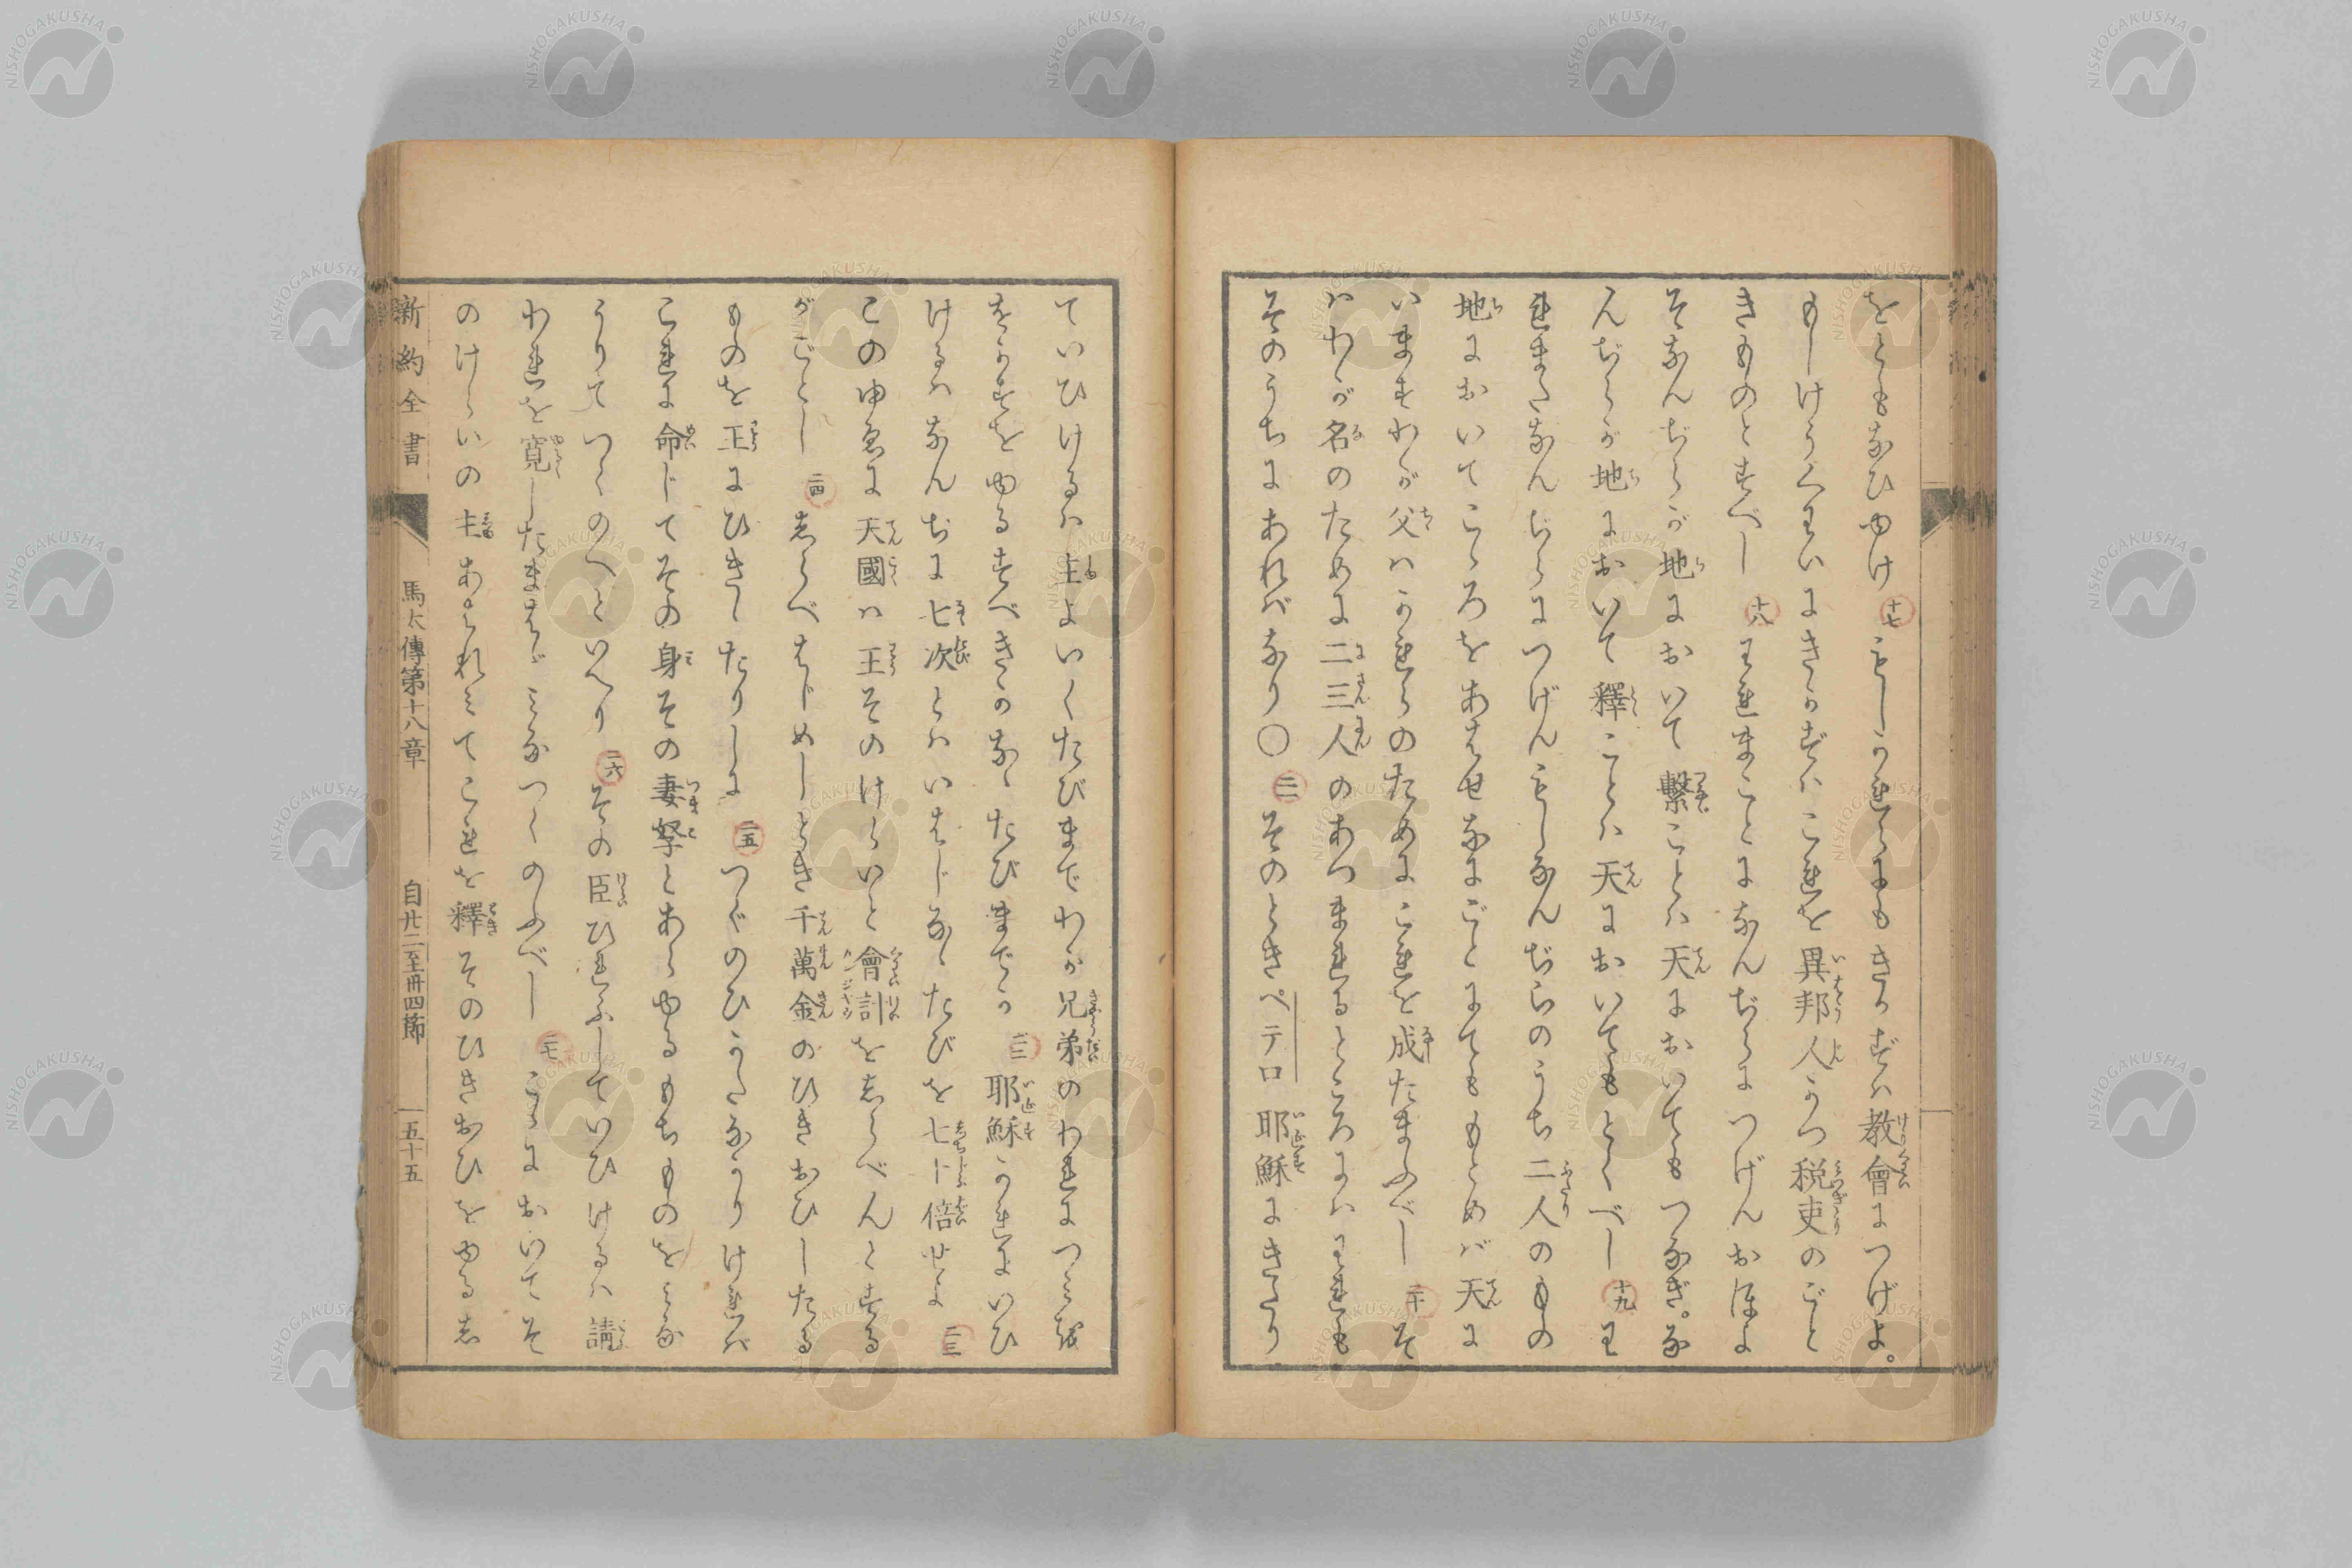 をともなひゆけ 十七 もしかれらにもきかずバ教會につげよ。
もしけうくわいにきかずバこれを異邦人かつ税吏のごと
きものとすべし 十八 われまことになんぢらにつげんおほよ
そなんぢらが地において繫ことハ天においてもつなぎ。な
んぢらが地において釋ことハ天においてもとくべし 十九 わ
れまたなんぢらにつげんもしなんぢらのうち二人のもの
地においてこゝろをあはせなにごとにてももとめバ天に
いますわが父ハかれらのためにこれを成たまふべし 二十 そ
ハわが名のために二三人のあつまれるところにハわれも
そのうちにあれバなり〇 二一 そのときペテロ耶穌にきたり
ていひけるハ主よいくたびまでわが兄弟のわれにつみを
をかすをゆるすべきかなゝたびまでか 二二 耶穌かれにいひ
けるハなんぢに七次とハいはじなゝたびを七十倍せよ 二三
このゆゑに天國ハ王そのけらいと會計をしらべんとする
がごとし 二四 しらべはじめしとき千萬金のひきおひしたる
ものを王にひききたりしに 二五 つぐのひかたなかりけれバ
これに命じてその身その妻孥とあらゆるもちものをみな
うりてつくのへといへり 二六 その臣ひれふしていひけるハ請
われを寛したまはゞみなつくのふべし 二七 こゝにおいてそ
のけらいの主あはれみてこれを釋そのひきおひをゆるし
新約全書 馬太傳第十八章 自廿二至卌四節 一五十五